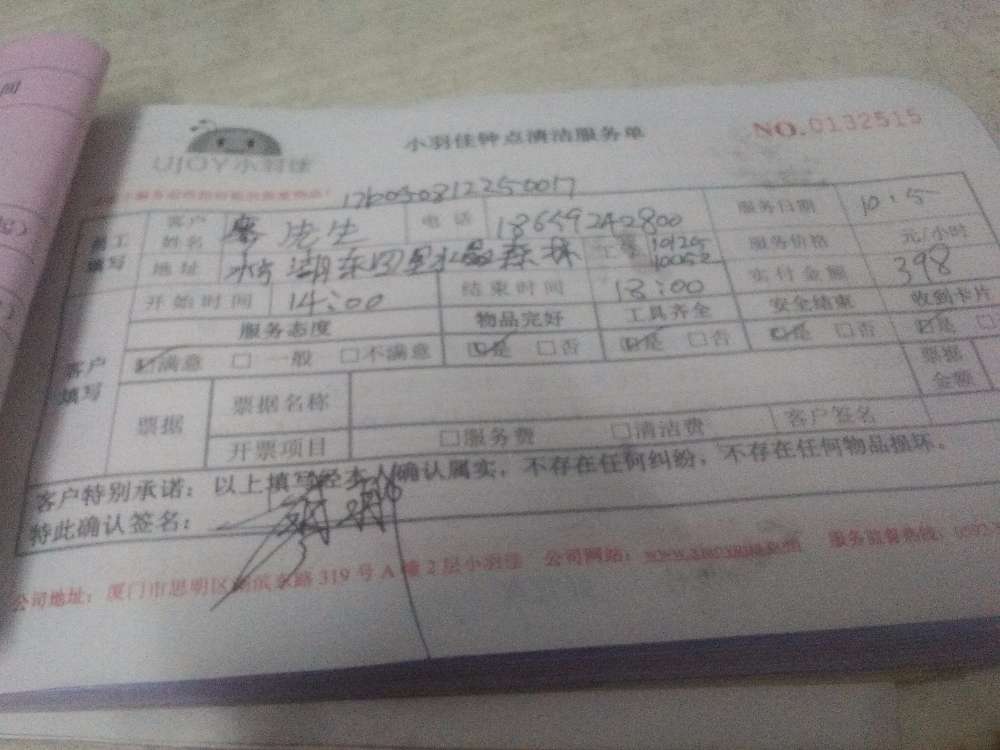 间
UJOY小羽佳
小羽佳钟点清洁服务单
NO.0132515
员工填写 客户姓名 先生 电话 18659242800 服务日期 10.5
地址 湖东四里水晶森林 工号 服务价格 元/小时
开始时间 14:00 结束时间 18:00 实付金额 398
服务态度 物品完好 工具齐全 安全结束 收到卡片
客户填写 ☑满意 □一般 □不满意 ☑是 □否 ☑是 □否 ☑是 □否 ☑是 □
票据 票据名称 票据金额
开票项目 □服务费 □清洁费 客户签名
客户特别承诺：以上填写经本人确认属实，不存在任何纠纷，不存在任何物品损坏。
特此确认签名：
公司地址：厦门市思明区湖滨东路319号A幢2层小羽佳 公司网站： 服务监督热线：